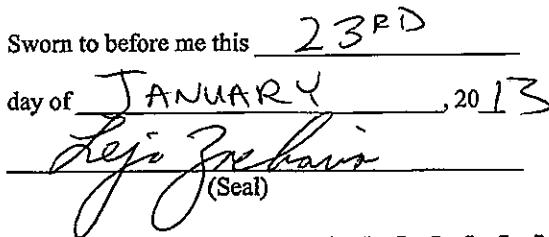 Sworn to before me this 23RD
day of JANUARY, 2013
Lejo Zacharia
(Seal)